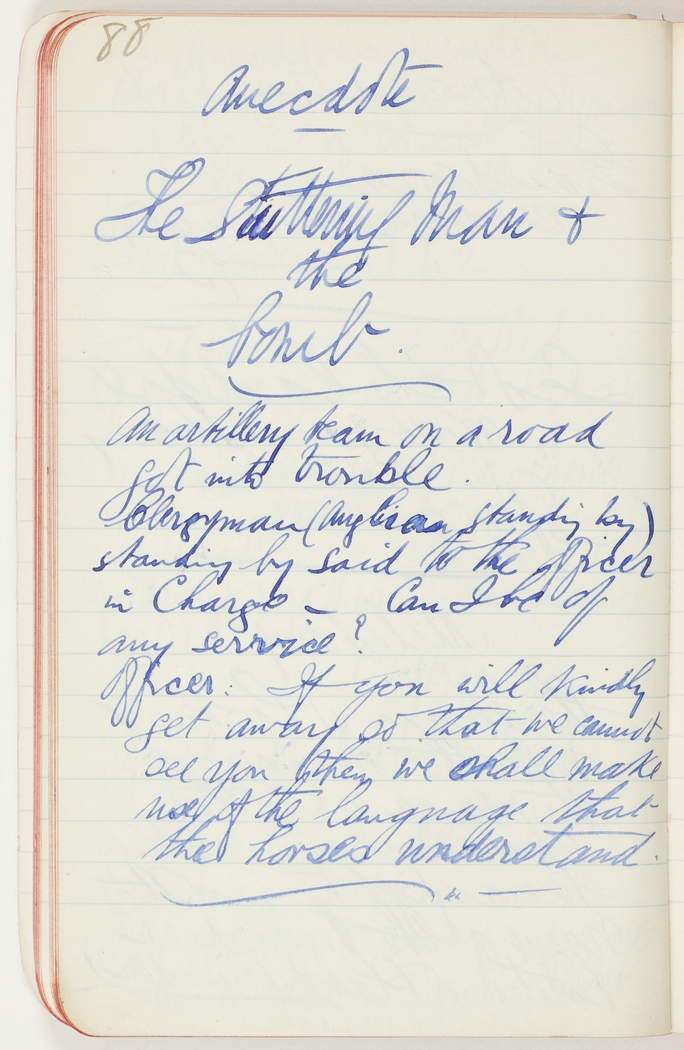 88
Anecdote
The Stuttering Man &
the
bomb.
An artillery team on a road
got into trouble.
Clergyman (Anglican standing by)
standing by said to the officer
in Charge – Can I be of
any service?
Officer: If you will kindly
get away so that we cannot
see you then we shall make
use of the language that
the horses understand.